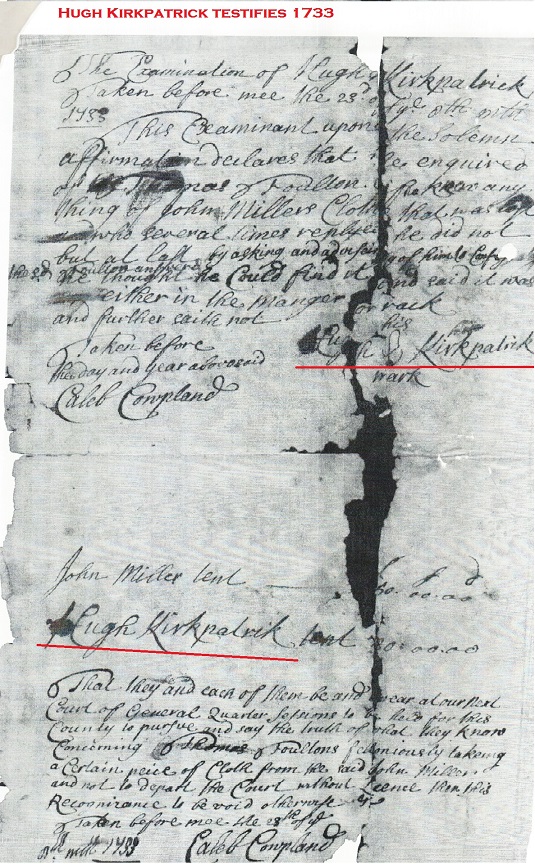 HUGH KIRKPATRICK TESTIFIES 1733
The Examination of Hugh Kirkpatrick
Taken before mee the 23d of ye 8th mth
1733
This Examinant upon the Solemn
affirmation declares that he enquired
of Thomas Foulton if he knew any
thing of John Millers Cloth that was lost
who several times replyed he did not
but at last by asking and of him to Confess
the sd Foulton answered
he thought he Could find it and said it was
either in the manger or rack
and further saith not
his
Hugh Kirkpatrik
mark
Taken before
the day and year abovesaid
Caleb Cowpland
John Miller tent
Hugh Kirkpatrik tent
That they and each of them be and appear at our next
Court of General Quarter Sessions to be held for this
County to pursue and say the truth of what they know
Concerning Thomas Foultons felloniously takeing
a Certain peice of Cloth from the said John Miller
and not to depart the Court without Leence then this
Recognizance to be void otherwise
Taken before mee the 23th of ye
8th mth 1733 Caleb Cowpland